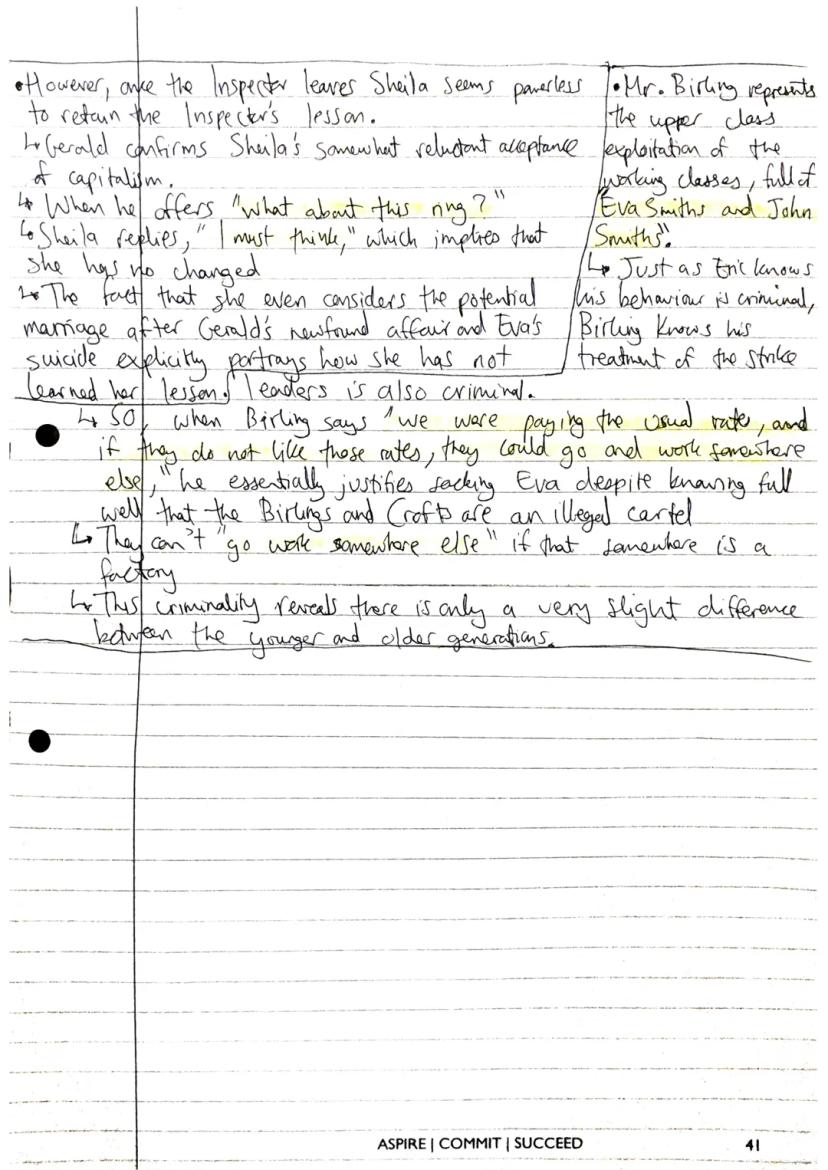 •However, once the Inspector leaves Sheila seems powerless
to retain the Inspector's lesson.
↳Gerald confirms Sheila's somewhat reluctant acceptance
of capitalism.
↳ When he offers "what about this ring?"
↳Sheila replies, "I must think," which implies that
she has no changed
↳ The fact that she even considers the potential
marriage after Gerald's newfound affair and Eva's
suicide explicitly portrays how she has not
learned her lesson.
•Mr. Birling represents
the upper class
exploitation of the
working classes, full of
"Eva Smiths and John
Smiths".
↳ Just as Eric knows
his behaviour is criminal,
Birling knows his
treatment of the strike
leaders is also criminal.
↳ SO, when Birling says "we were paying the usual rate, and
if they do not like those rates, they could go and work somewhere
else," he essentially justifies sacking Eva despite knowing full
well that the Birlings and Crofts are an illegal cartel
↳ They can't "go work somewhere else" if that somewhere is a
factory
↳ This criminality reveals there is only a very slight difference
between the younger and older generations.
ASPIRE | COMMIT | SUCCEED
41